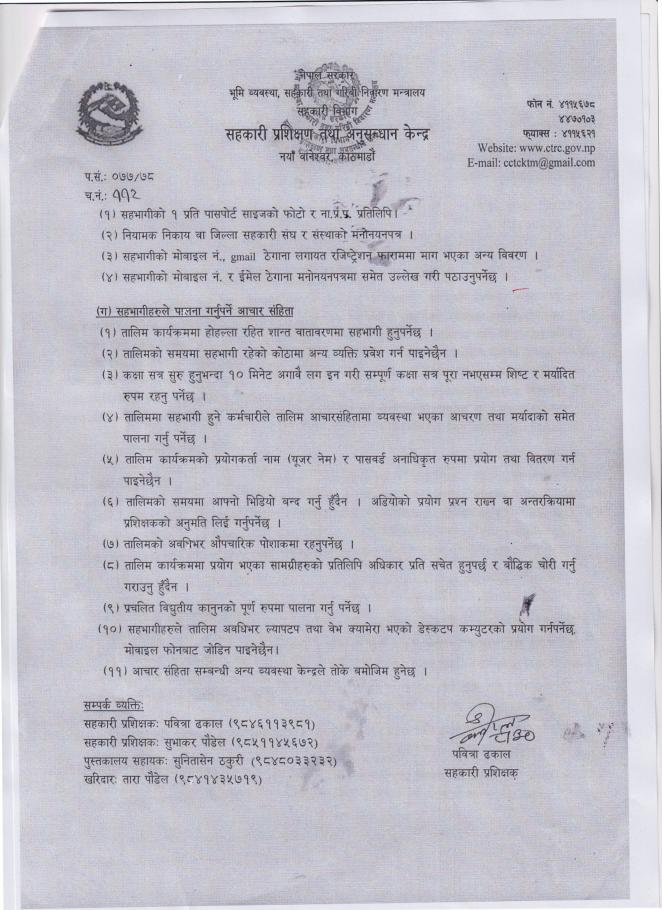 नेपाल सरकार
भूमि व्यवस्था, सहकारी तथा गरिबी निवारण मन्त्रालय
सहकारी विभाग
सहकारी प्रशिक्षण तथा अनुसन्धान केन्द्र
नयाँ बानेश्वर, काठमाडौं
फोन नं. ४११५६७८
४४७०१०३
फ्याक्स : ४११५६२१
Website: www.ctrc.gov.np
E-mail: cctcktm@gmail.com
प.सं.: ०७७/७८
च.नं.: ११२
(१) सहभागीको १ प्रति पासपोर्ट साइजको फोटो र ना.प्र.प्र. प्रतिलिपि।
(२) नियामक निकाय वा जिल्ला सहकारी संघ र संस्थाको मनोनयनपत्र ।
(३) सहभागीको मोबाइल नं., gmail ठेगाना लगायत रजिष्ट्रेशन फाराममा माग भएका अन्य विवरण ।
(४) सहभागीको मोबाइल नं. र ईमेल ठेगाना मनोनयनपत्रमा समेत उल्लेख गरी पठाउनुपर्नेछ ।
(ग) सहभागीहरुले पालना गर्नुपर्ने आचार संहिता
(१) तालिम कार्यक्रममा होहल्ला रहित शान्त वातावरणमा सहभागी हुनुपर्नेछ ।
(२) तालिमको समयमा सहभागी रहेको कोठामा अन्य व्यक्ति प्रवेश गर्न पाइनेछैन ।
(३) कक्षा सत्र सुरु हुनुभन्दा १० मिनेट अगावै लग इन गरी सम्पूर्ण कक्षा सत्र पूरा नभएसम्म शिष्ट र मर्यादित
रुपम रहनु पर्नेछ ।
(४) तालिममा सहभागी हुने कर्मचारीले तालिम आचारसंहितामा व्यवस्था भएका आचरण तथा मर्यादाको समेत
पालना गर्नु पर्नेछ ।
(५) तालिम कार्यक्रमको प्रयोगकर्ता नाम (यूजर नेम) र पासवर्ड अनाधिकृत रुपमा प्रयोग तथा वितरण गर्न
पाइनेछैन ।
(६) तालिमको समयमा आफ्नो भिडियो बन्द गर्नु हुँदैन । अडियोको प्रयोग प्रश्न राख्न वा अन्तरक्रियामा
प्रशिक्षकको अनुमति लिई गर्नुपर्नेछ ।
(७) तालिमको अवधिभर औपचारिक पोशाकमा रहनुपर्नेछ ।
(८) तालिम कार्यक्रममा प्रयोग भएका सामग्रीहरुको प्रतिलिपि अधिकार प्रति सचेत हुनुपर्छ र बौद्धिक चोरी गर्नु
गराउनु हुँदैन ।
(९) प्रचलित विद्युतीय कानुनको पूर्ण रुपमा पालना गर्नु पर्नेछ ।
(१०) सहभागीहरुले तालिम अवधिभर ल्यापटप तथा वेभ क्यामेरा भएको डेस्कटप कम्युटरको प्रयोग गर्नपर्नेछ,
मोबाइल फोनबाट जोडिन पाइनेछैन।
(११) आचार संहिता सम्बन्धी अन्य व्यवस्था केन्द्रले तोके बमोजिम हुनेछ ।
सम्पर्क व्यक्ति:
सहकारी प्रशिक्षक: पवित्रा ढकाल (९८४६११३९८१)
सहकारी प्रशिक्षक: सुभाकर पौडेल (९८५११४५६७२)
पुस्तकालय सहायक: सुनितासेन ठकुरी (९८४८०३३२३२)
खरिदार: तारा पौडेल (९८४१४३५७१९)
पवित्रा ढकाल
सहकारी प्रशिक्षक